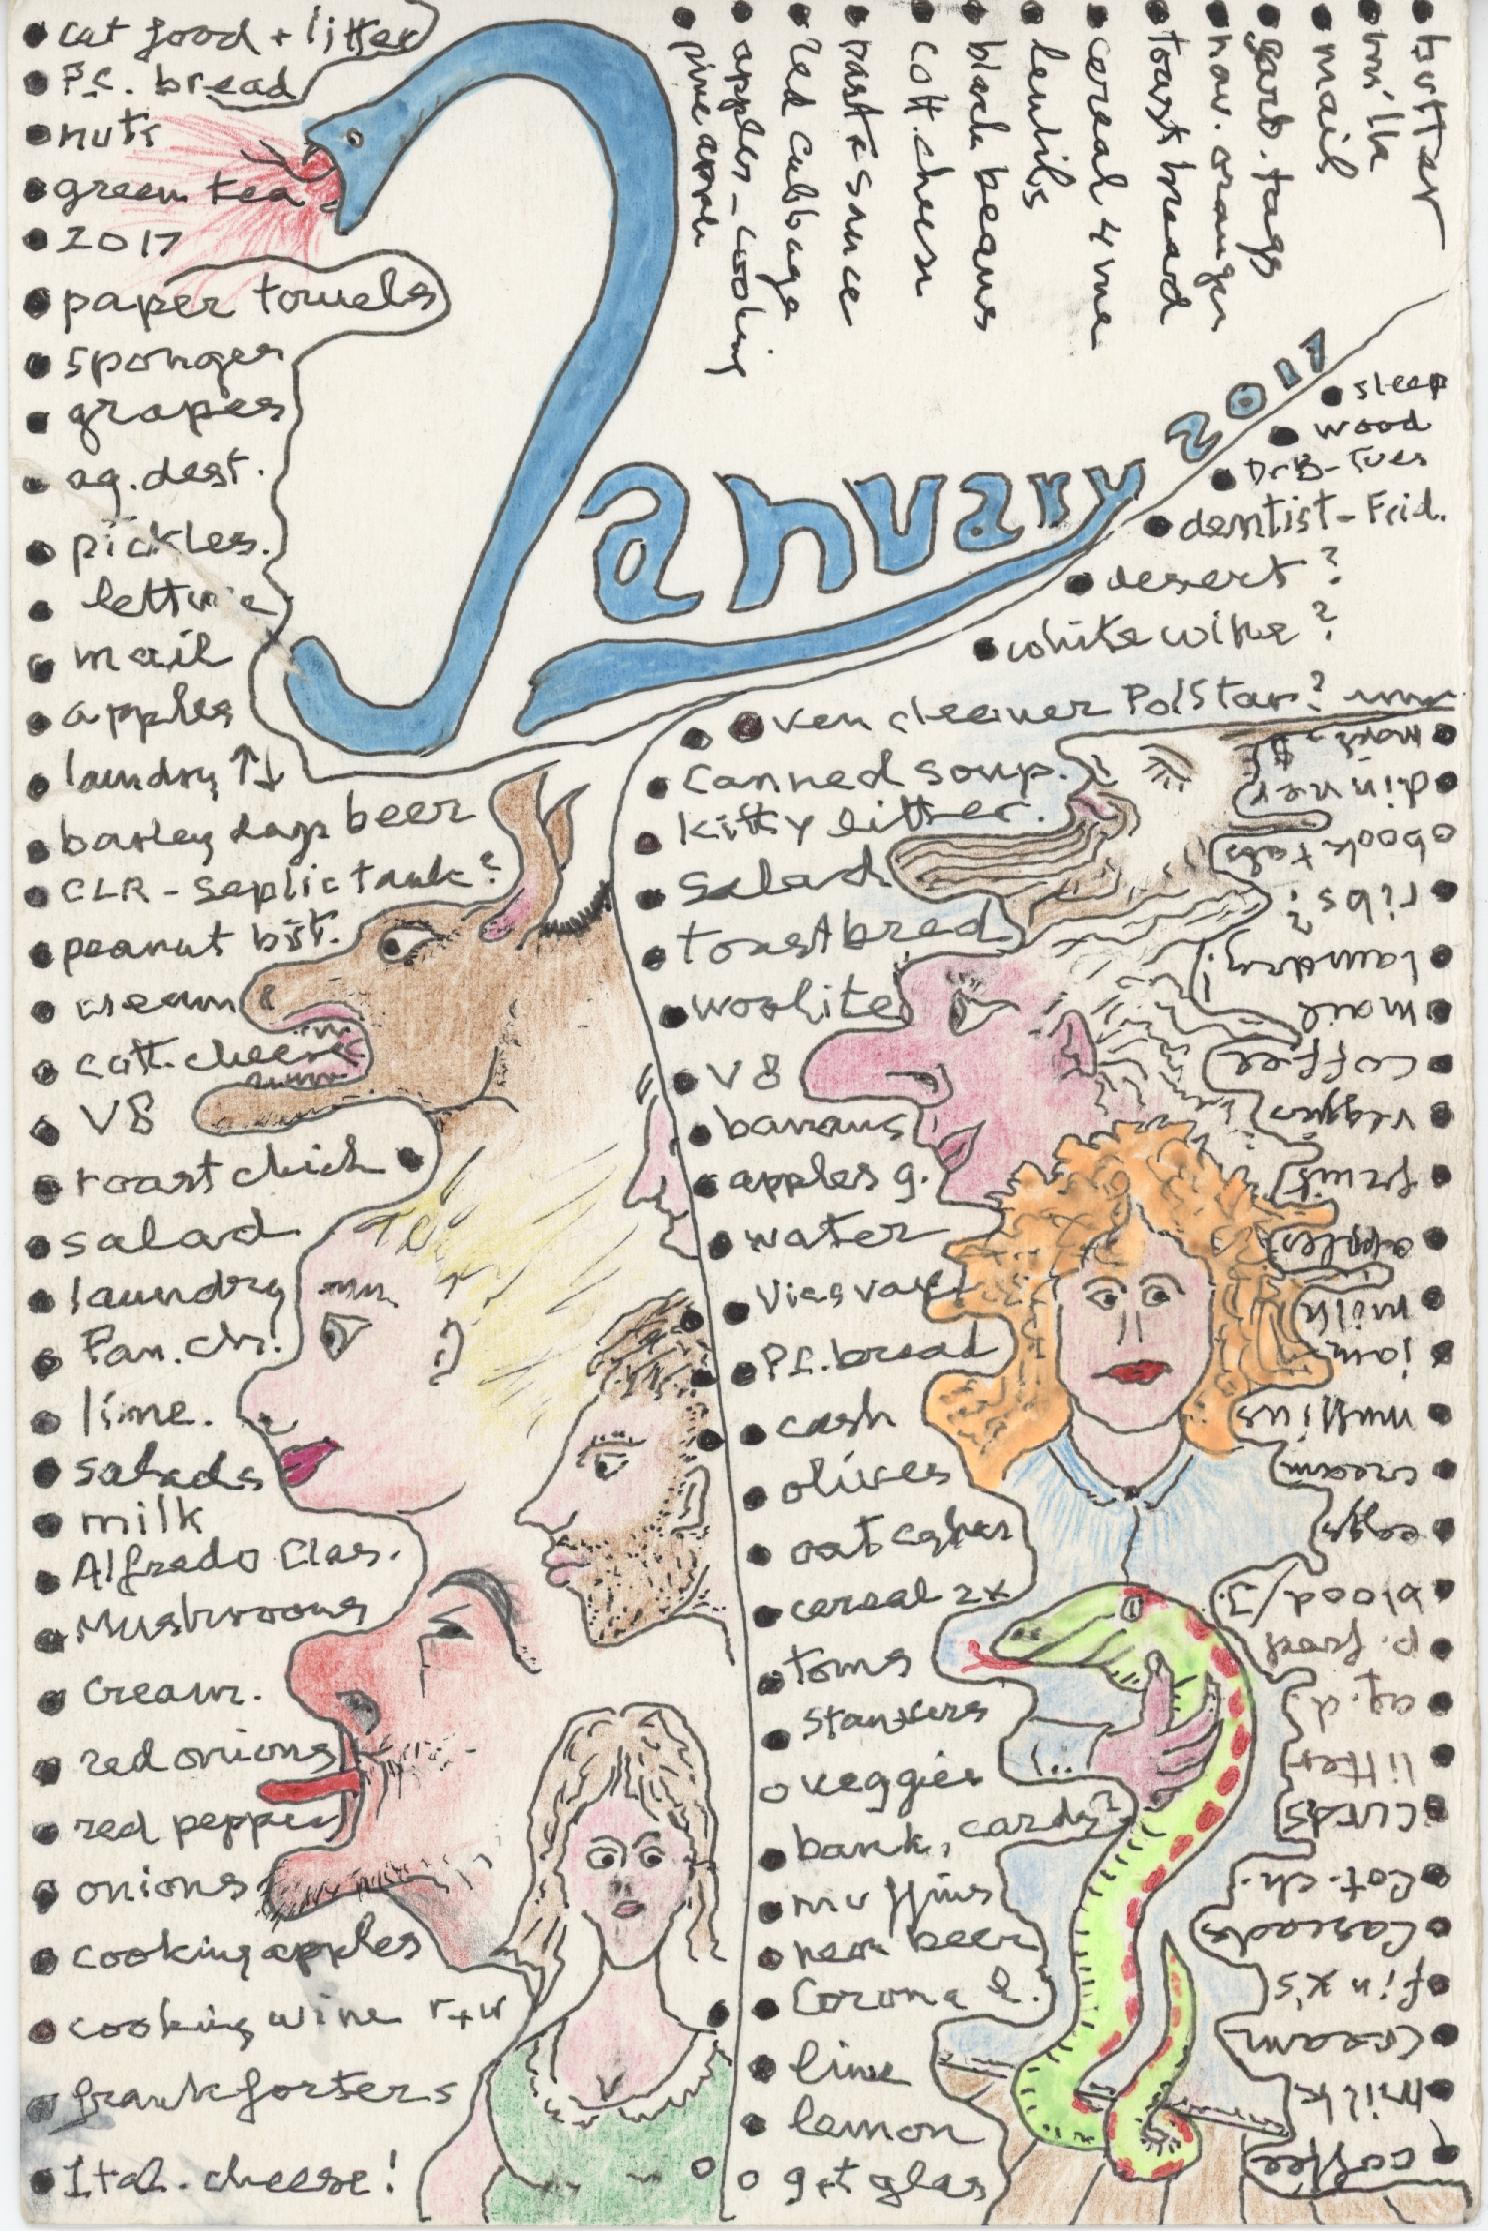 cat food + litter
P.F. bread
nuts
green tea
2017
paper towels
sponges
grapes
aq. dest.
pickles.
lettuce
mail
apples
laundry ↑↓
barley days beer
CLR - septic tank?
peanut bst.
cream
cott. cheese
V8
roast chick
salad
laundry
Pan. ch!
lime.
salads
milk
Alfredo Clas.
Mushrooms
Cream.
red onions
red pepper
onions
cooking apples
cooking wine r+w
frankforters
Ital. cheese!
pineapple
apples - cooking
red cabbage
pasta sauce
cott. cheese
black beans
lentils
cereal 4 me
toast bread
nav. oranges
garb. tags
mail
butter
January 2017
sleep
wood
Dr B - Tues
dentist - Frid.
desert?
white wine?
oven cleaner Polstar?
canned soup.
kitty litter.
Salad
toastbred
woolite
V8
bananas
apples g.
water
P.F. bread
cash
olives
oat cakes
cereal 2x
toms
veggies
bank, cards?
muffins
new beer
Corona
lime
lemon
get glas
dinner
book tabs
ribs?
laundry!
mail
coffee
veggies
fruit
apples
milk
jam
muffins
cream
eggs
blood
aq. d.
litter
curds
Cot. ch.
Cascade
cream
Milk
coffee